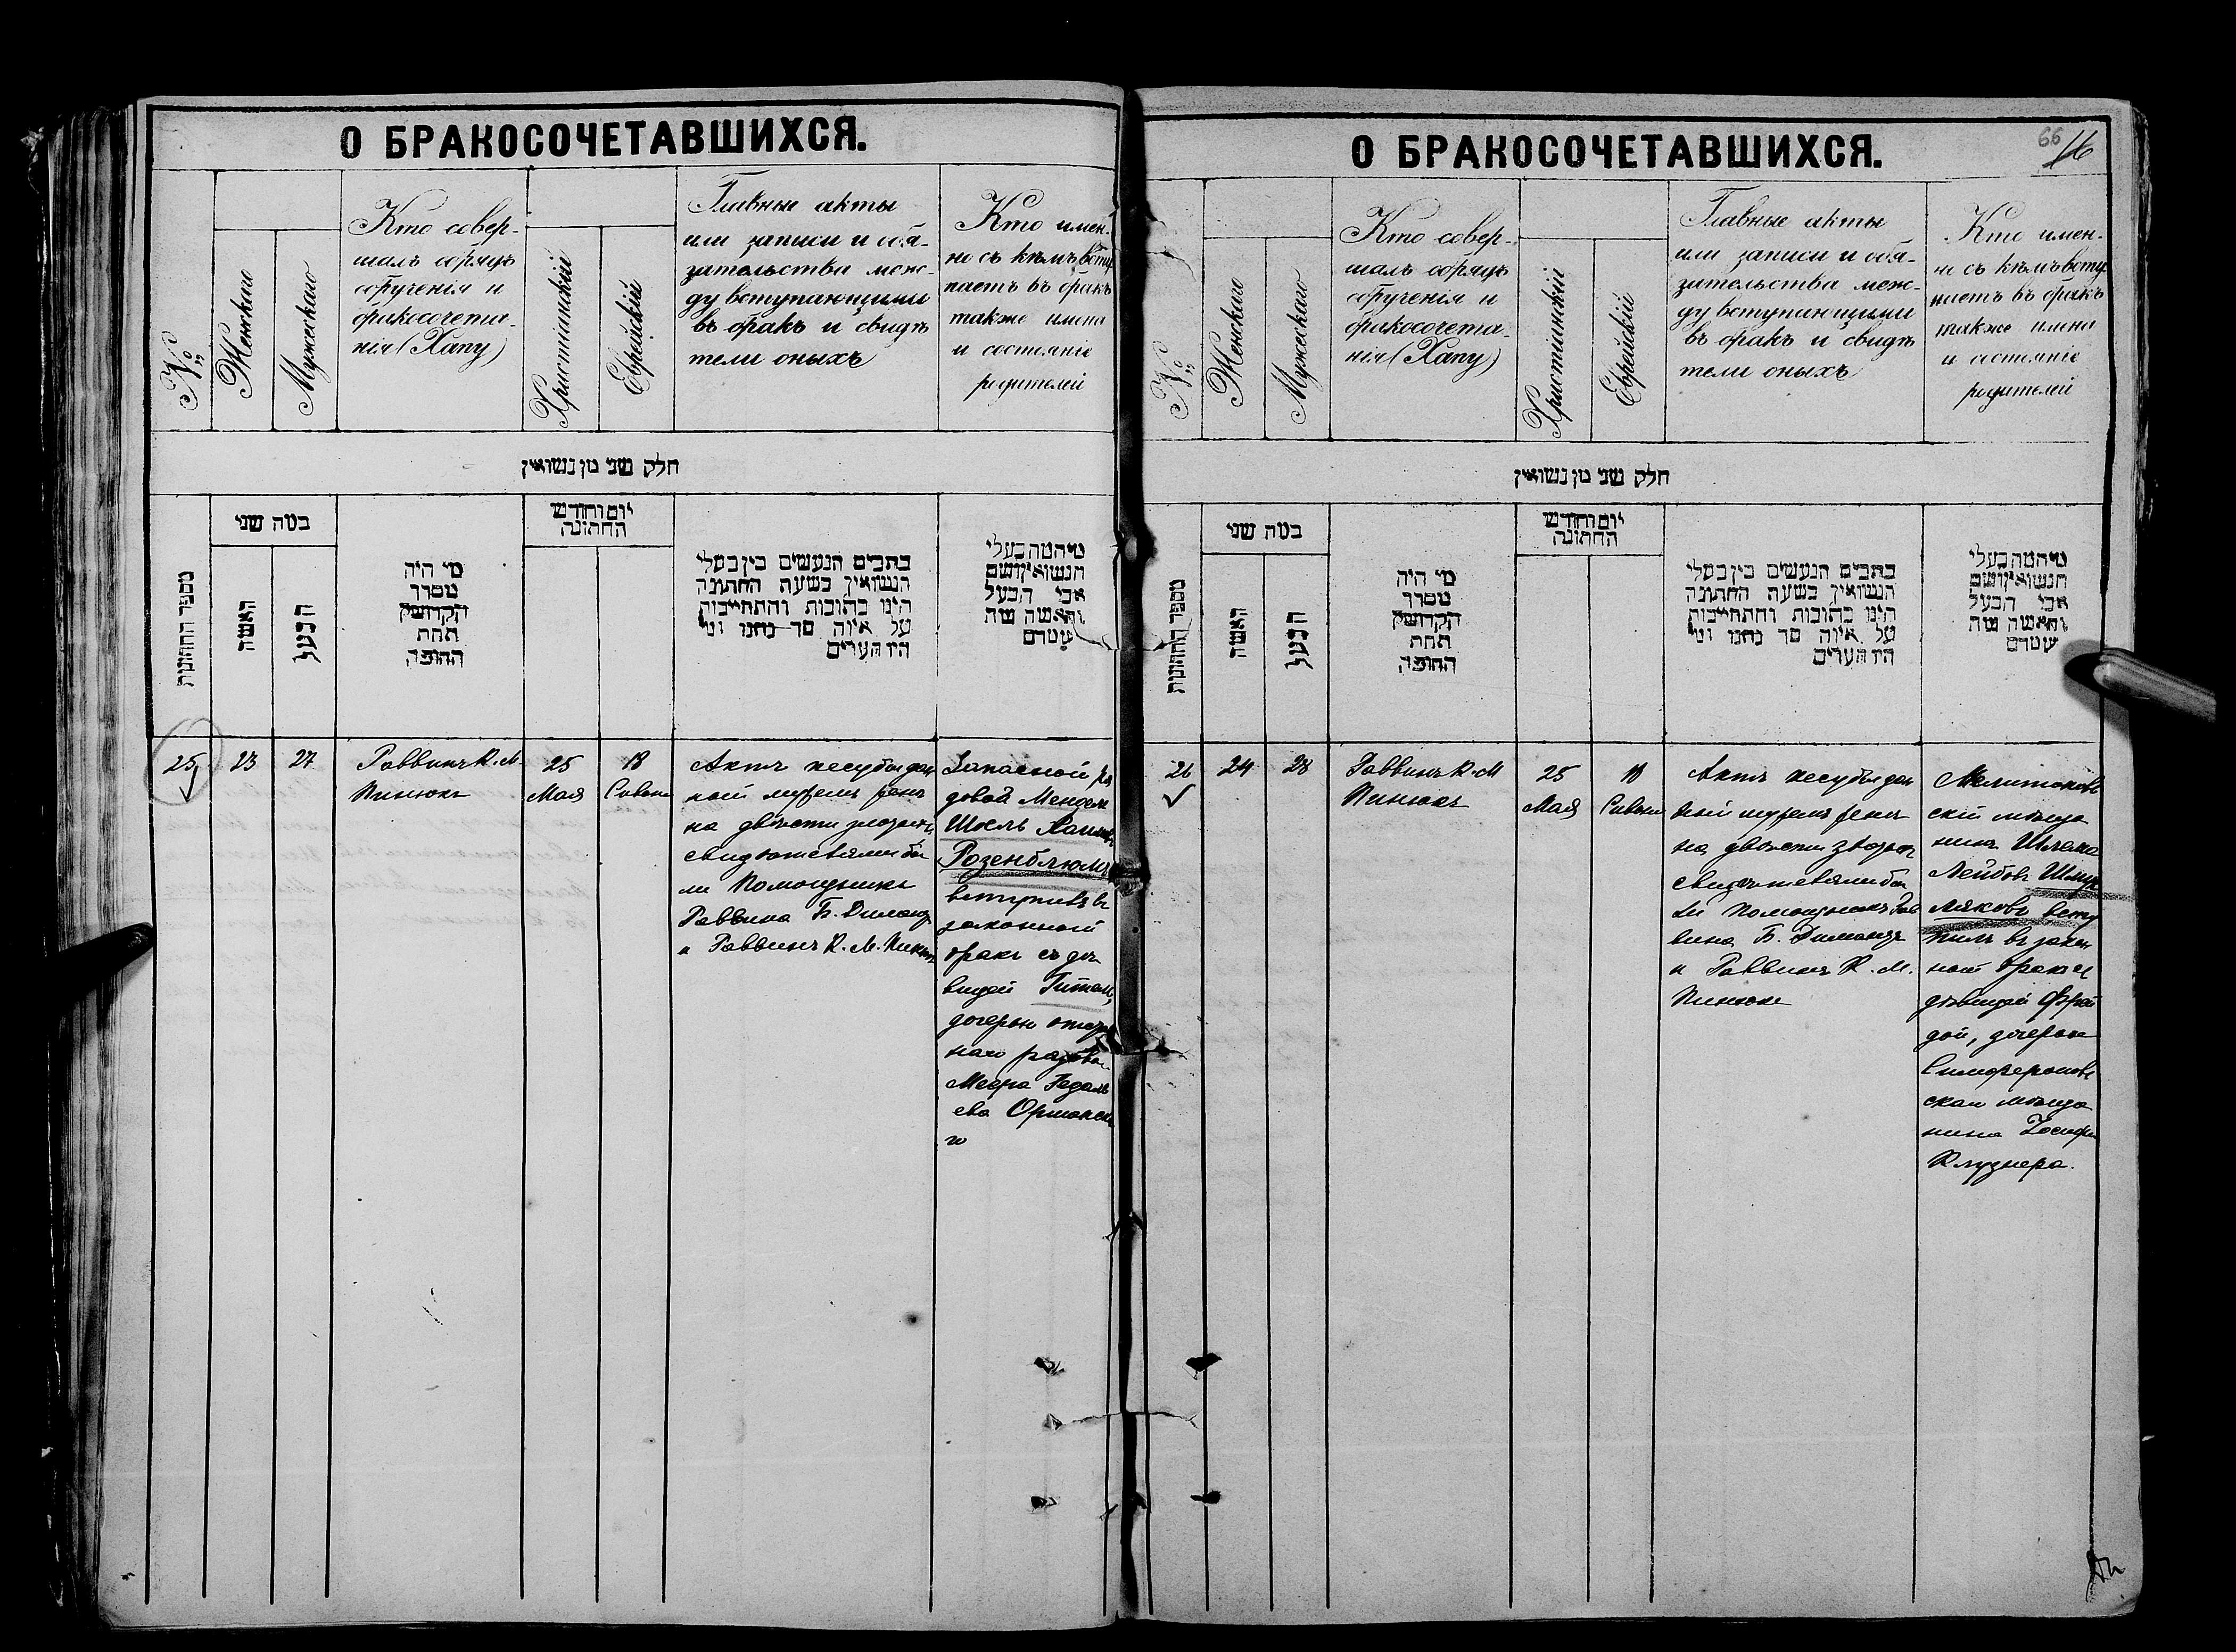 О БРАКОСОЧЕТАВШИХСЯ.
№
Женскаго
Мужескаго
Кто совер-
шалъ обрядъ
обрученія и
бракосочета-
нія (Хапу)
Христіанскій
Еврейскій
Главные акты
или записи и обя-
зательства меж-
ду вступающими
въ бракъ и свидѣ
тели оныхъ
Кто имен-
но съ кѣмъ всту
паетъ въ бракъ
также имена
и состояніе
родителей
חלק שני מן נשואין
מספר החתונות
במה שני
האשה
הבעל
מי היה
מסדר
הקדושין
תחת
החופה
יום וחודש
החתונה
בתבים הנעשים בין בעלי
הנשואין בשעת החתונה
היינו כתובות והתחייבות
על איזה סך נתנו ומי
היו העדים
מי המה בעלי
הנשואין ושם
אבי הבעל
והאשה ומה
שטרם
25
23
27
Раввинъ К. М.
Пинюкъ
25
Мая
18
Сивонъ
Актъ кесубы дан
ный мужемъ женѣ
на двѣсти злотыхъ
свидѣтелями бы
ли Помощникъ
Раввина Б. Димандъ
и Раввинъ К. М. Пинюкъ
Запасной ря
довой Мендель
Шоель Хаимовъ
Розенблюмъ
вступилъ въ
законный
бракъ съ дѣ
вицей Гителей,
дочерью отстав
наго рядова
Меера Гедаль
ева Оршанска
го
О БРАКОСОЧЕТАВШИХСЯ.
66
16
№
Женскаго
Мужескаго
Кто совер-
шалъ обрядъ
обрученія и
бракосочета-
нія (Хапу)
Христіанскій
Еврейскій
Главные акты
или записи и обя-
зательства меж-
ду вступающими
въ бракъ и свидѣ
тели оныхъ
Кто имен-
но съ кѣмъ всту
паетъ въ бракъ
также имена
и состояніе
родителей
חלק שני מן נשואין
מספר החתונות
במה שני
האשה
הבעל
מי היה
מסדר
הקדושין
תחת
החופה
יום וחודש
החתונה
בתבים הנעשים בין בעלי
הנשואין בשעת החתונה
היינו כתובות והתחייבות
על איזה סך נתנו ומי
היו העדים
מי המה בעלי
הנשואין ושם
אבי הבעל
והאשה ומה
שטרם
26
24
28
Раввинъ К. М
Пинюкъ
25
Мая
18
Сивонъ
Актъ кесубы дан
ный мужемъ женѣ
на двѣсти злотыхъ
свидѣтелями бы
ли Помощникъ Рав
вина Б. Димандъ
и Раввинъ К. М.
Пинюкъ
Мелитополь
скій мѣща
нинъ Шлема
Лейбовъ Шмук
ляковъ всту
пилъ въ закон
ный бракъ съ
дѣвицей Фрей
дой, дочерью
Симферополь
скаго мѣща
нина Іосифа
Клузнера.